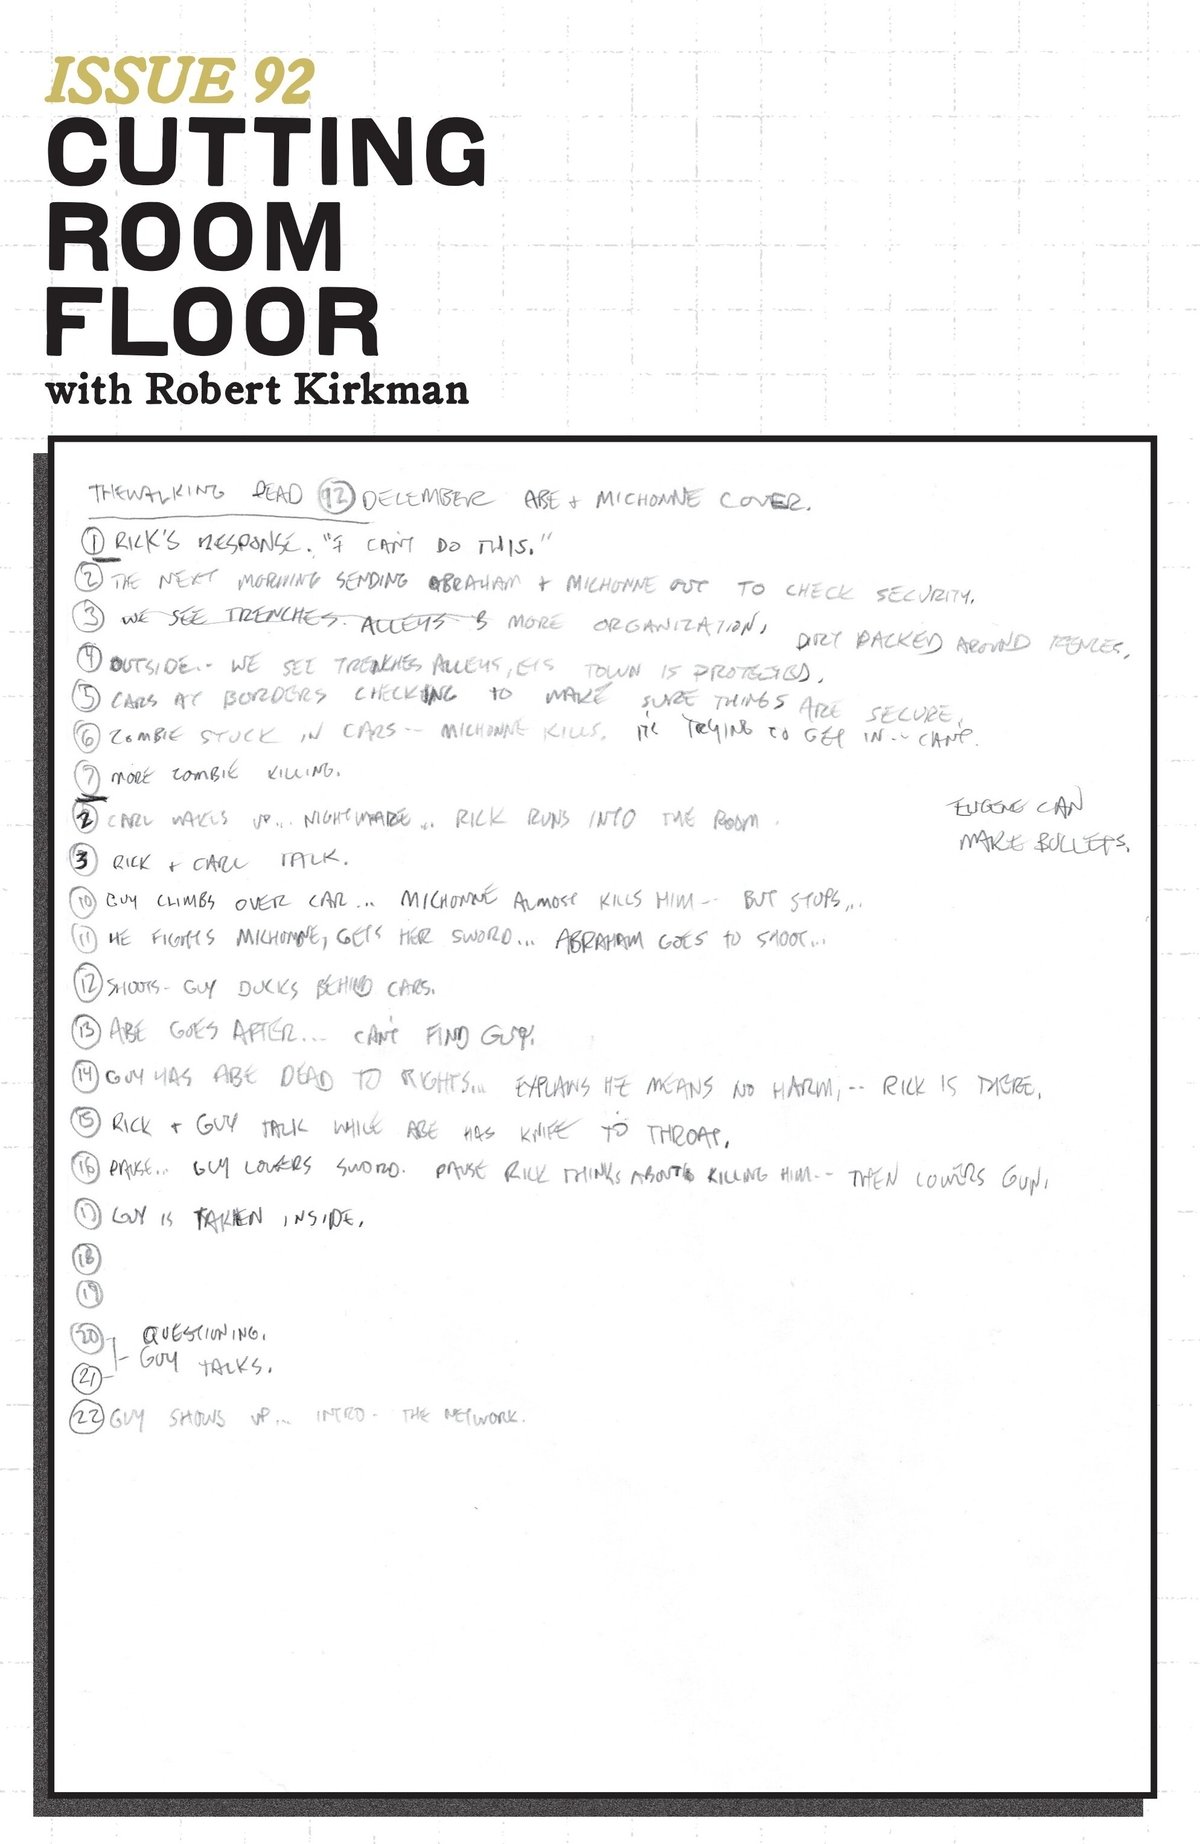 ISSUE 92
CUTTING
ROOM
FLOOR
with Robert Kirkman
THE WALKING DEAD 92 DECEMBER ABE + MICHONNE COVER.
1 RICK'S RESPONSE. "I CAN'T DO THIS."
2 THE NEXT MORNING SENDING ABRAHAM + MICHONNE OUT TO CHECK SECURITY.
3 WE SEE TRENCHES. ALLEYS & MORE ORGANIZATION, DIRT PACKED AROUND FENCES.
4 OUTSIDE.. WE SEE TRENCHES ALLEYS, ETS TOWN IS PROTECTED.
5 CARS AT BORDERS CHECKING TO MAKE SURE THINGS ARE SECURE.
6 ZOMBIE STUCK IN CARS-- MICHONNE KILLS. TRYING TO GET IN-- CAN'T.
7 MORE ZOMBIE KILLING.
2 CARL WAKES UP... NIGHTMARE... RICK RUNS INTO THE ROOM.
EUGENE CAN
MAKE BULLETS.
3 RICK + CARL TALK.
10 GUY CLIMBS OVER CAR... MICHONNE ALMOST KILLS HIM-- BUT STOPS...
11 HE FIGHTS MICHONNE, GETS HER SWORD... ABRAHAM GOES TO SHOOT...
12 SHOOTS- GUY DUCKS BEHIND CARS.
13 ABE GOES AFTER... CAN'T FIND GUY.
14 GUY HAS ABE DEAD TO RIGHTS... EXPLAINS HE MEANS NO HARM, -- RICK IS THERE.
15 RICK + GUY TALK WHILE ABE HAS KNIFE TO THROAT.
16 PAUSE... GUY LOWERS SWORD. PAUSE RICK THINKS ABOUT KILLING HIM-- THEN LOWERS GUN.
17 GUY IS TAKEN INSIDE.
18
19
20 QUESTIONING.
21 GUY TALKS.
22 GUY SHOWS UP... INTRO- THE NETWORK.